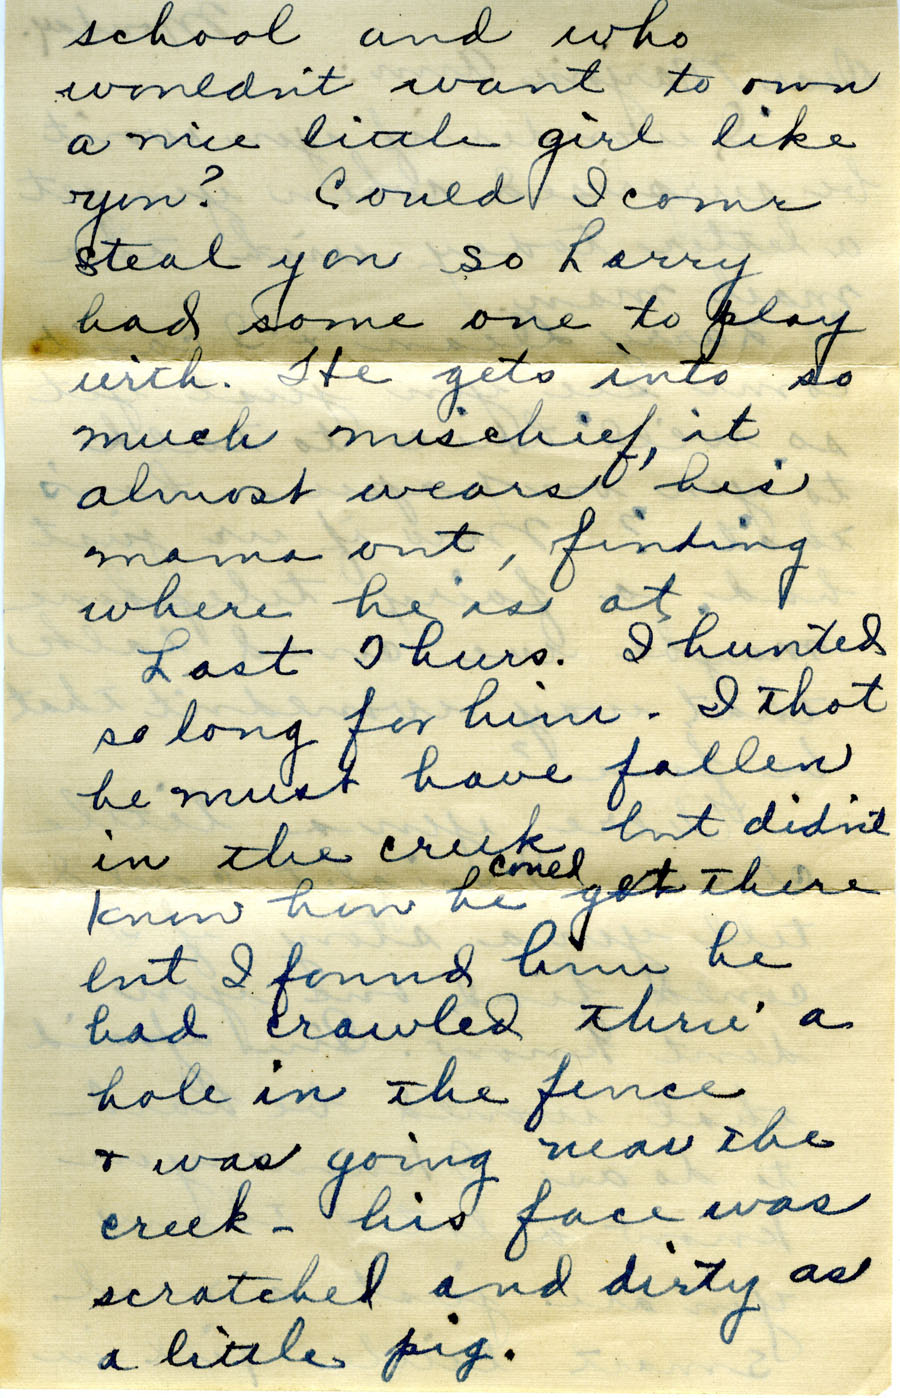 school and who
wouldn't want to own
a nice little girl like
you? Could I come
steal you so Larry
had some one to play
with. He gets into so
much mischief, it
almost wears his
mama out, finding
where he is at.
Last Thurs. I hunted
so long for him. I thot
he must have fallen
in the creek but didn't
know how he could get there
but I found him he
had crawled thru' a
hole in the fence
+ was going near the
creek - his face was
scratched and dirty as
a little pig.